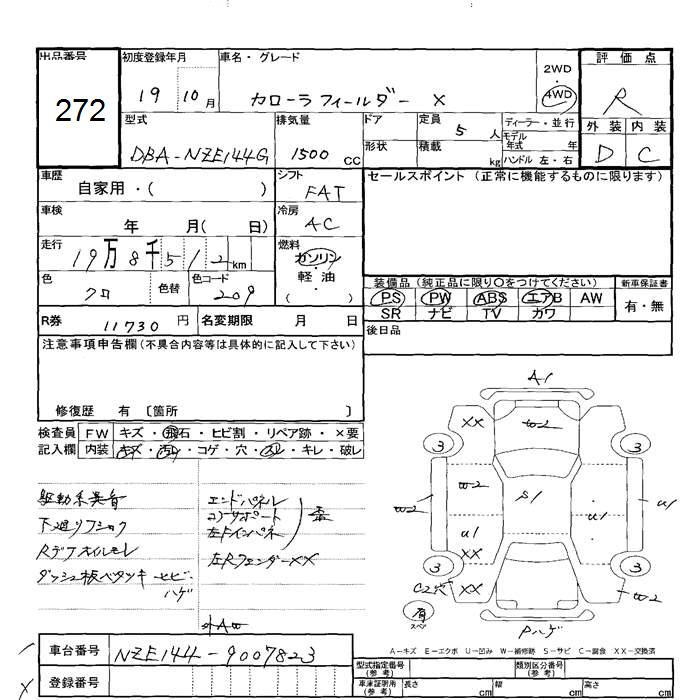 出品番号 初度登録年月 車名・グレード 2WD 評価点
272 19 10月 カローラフィールダー X 4WD R
型式 排気量 ドア 定員 5人 ディーラー・並行 外装 内装
DBA-NZE144G 1500 CC 形状 積載 kg モデル年式 年 D C
ハンドル 左・右
車歴 自家用・( ) シフト FAT セールスポイント (正常に機能するものに限ります)
車検 年 月( 日) 冷房 AC
走行 19万8千512km 燃料 ガソリン・軽油 ( )
色 クロ 色替 色コード 209
装備品 (純正品に限り〇をつけてください) 新車保証書
PS PW ABS エアB AW 有・無
SR ナビ TV カワ
R券 11730円 名変期限 月 日 後日品
注意事項申告欄(不具合内容等は具体的に記入して下さい)
修復歴 有 〔箇所 〕
検査員 FW キズ・飛石・ヒビ割・リペア跡・×要
記入欄 内装 キズ・汚レ・コゲ・穴・スレ・キレ・破レ
駆動系異音
下廻リフショク
Rデフオイルモレ
ダッシュ板ベタツキ ヒビ・ハゲ
エンドパネル
コアサポート
左Fインパネ
左RフェンダーXX
A1
XX W2
3 3
W2 W2 S1 U1 U1
U1
XX
3 3
C2穴 XX W2
有
スペ
Pハゲ
A-キズ E-エクボ U-凹み W-補修跡 S-サビ C-腐食 XX-交換済
車台番号 NZE144-9007823
登録番号
型式指定番号(参考) 類別区分番号(参考)
車庫証明用(参考) 長さ cm 幅 cm 高さ cm